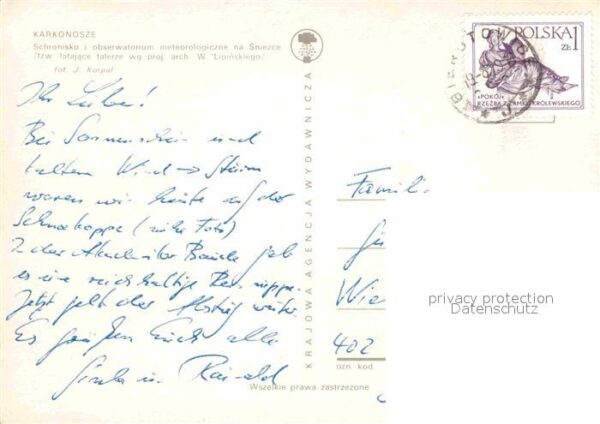 KARKONOSZE
Schronisko i obserwatorium meteorologiczne na Śnieżce
/tzw. latające talerze wg proj. arch. W. Lipińskiego/
fot. J. Korpal
Ihr Lieben!
Bei Sonnenschein und
kaltem Wind → Sturm
waren wir heute auf der
Schneekoppe (siehe Foto)
In der Baude gab
es eine reichhaltige
Jetzt geht der Abstieg weiter
Es grüßen Euch alle
u.
KRAJOWA AGENCJA WYDAWNICZA
POLSKA 1
ZŁ
«POKÓJ»
RZEŹBA Z ZAMKU KRÓLEWSKIEGO
BIERUTOWICE
Famili
Wie
402
ozn. kod
Wszelkie prawa zastrzeżone
privacy protection
Datenschutz